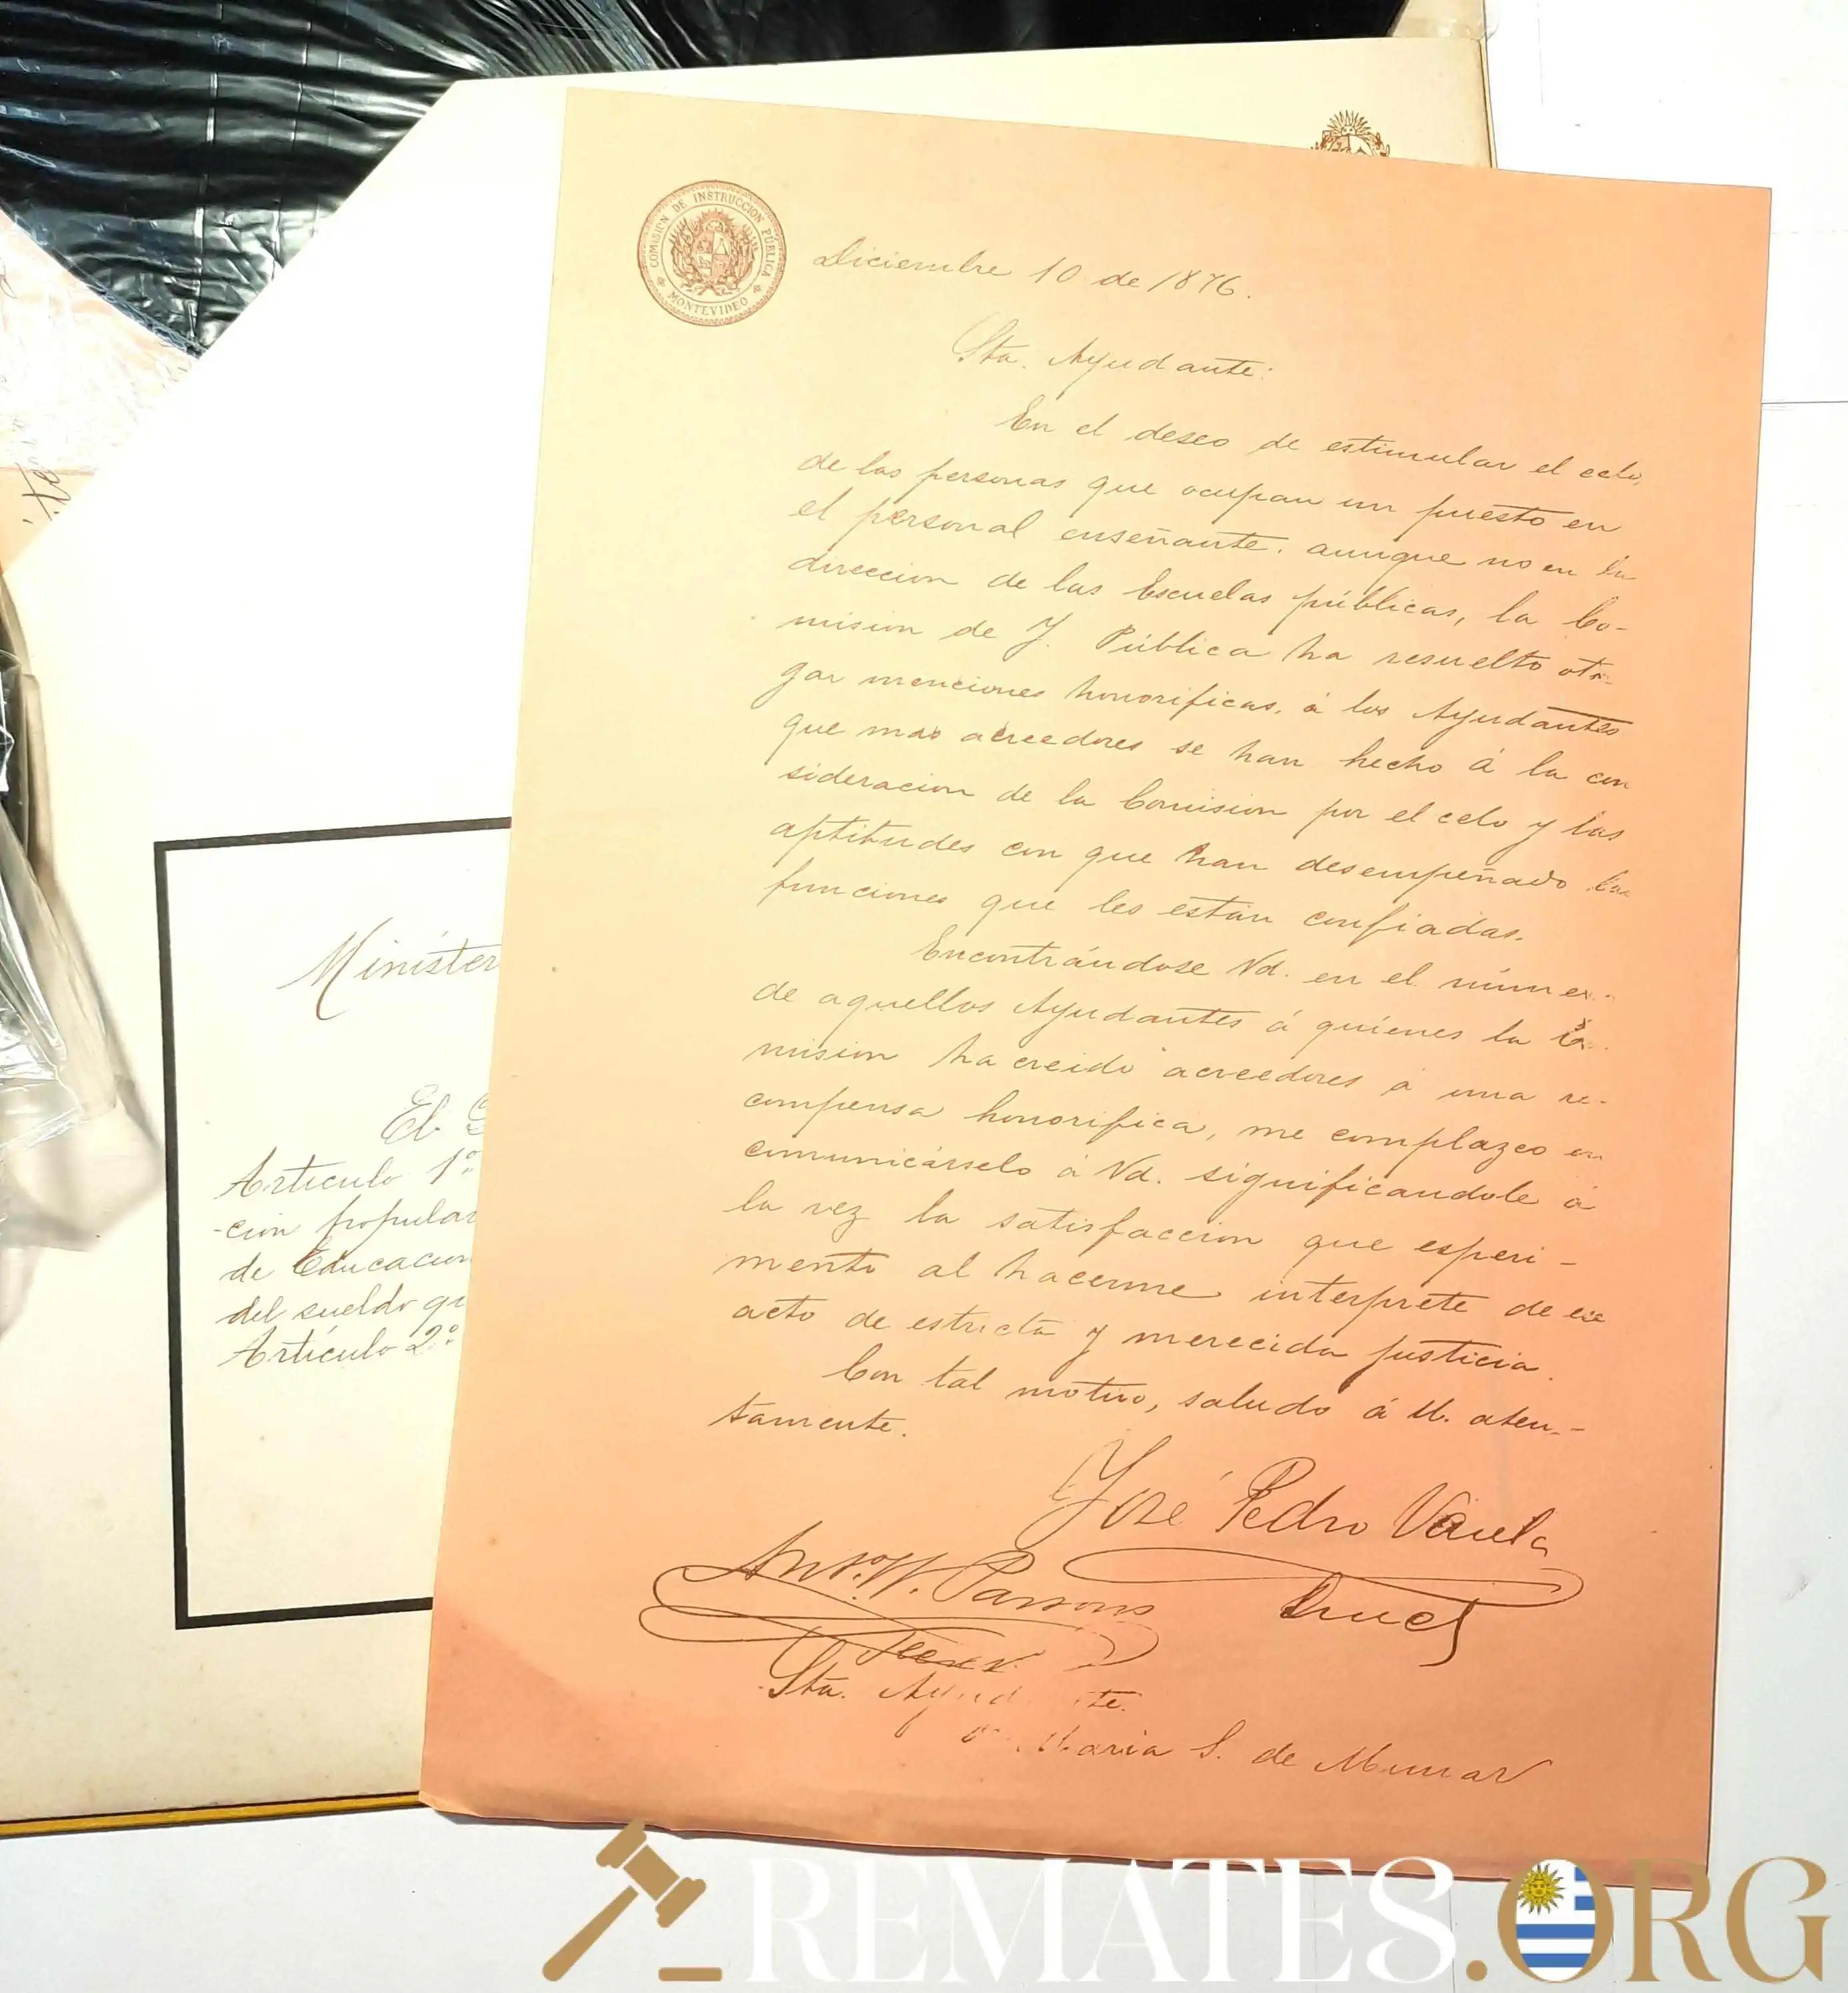 COMISION DE INSTRUCCION PÚBLICA
MONTEVIDEO
Diciembre 10 de 1876.
Sta. Ayudante:
En el deseo de estimular el celo,
de las personas que ocupan un puesto en
el personal enseñante, aunque no en la
direccion de las Escuelas públicas, la Co-
mision de I. Pública ha resuelto otor-
gar menciones honorificas, á los Ayudantes
que mas acreedores se han hecho á la con
sideracion de la Comision por el celo y las
aptitudes con que han desempeñado las
funciones que les están confiadas.
Encontrándose Vd. en el número
de aquellos Ayudantes á quienes la Co-
mision ha creido acreedores á una re-
compensa honorifica, me complazco en
comunicárselo á Vd. significandole á
la vez la satisfaccion que esperi-
mento al hacerme interprete de ese
acto de estricta y merecida justicia.
Con tal motivo, saludo á U. aten-
tamente.
José Pedro Varela
W. Parsons
Sta. Ayudante.
Maria S. de Munar
Minister
El
Artículo 1º
-ción popular
de Educacion
del sueldo qu
Artículo 2º
REMATES.ORG